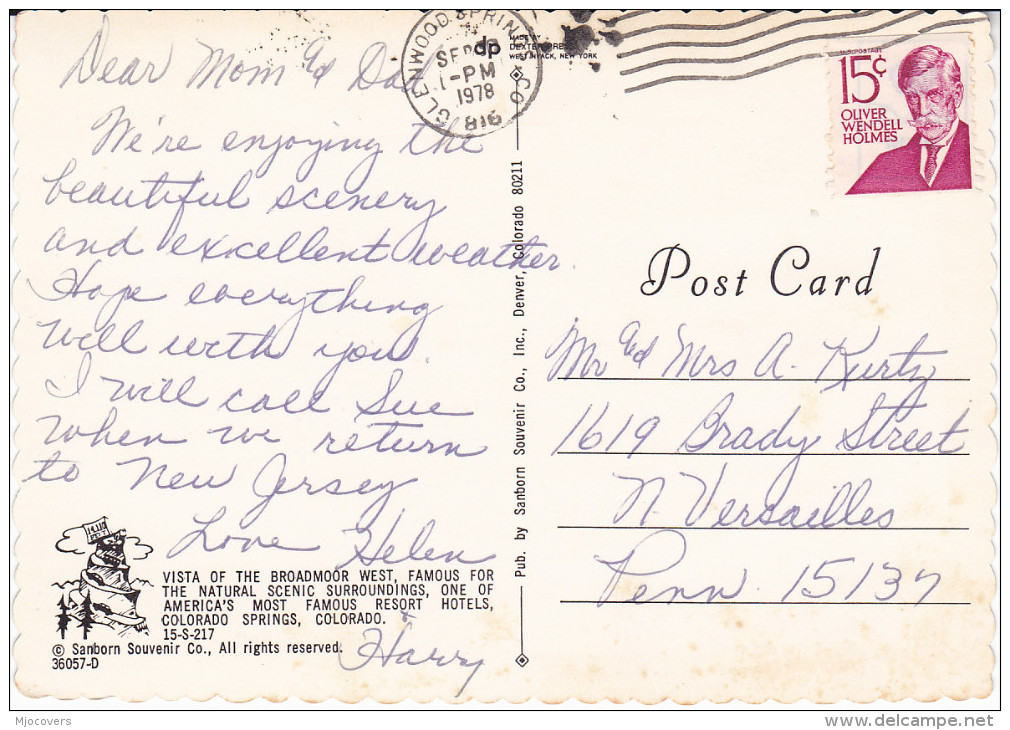 Dear Mom & Dad
We're enjoying the
beautiful scenery
and excellent weather.
Hope everything
well with you.
I will call Sue
when we return
to New Jersey
Love Helen
+
Harry
14,110
FEET
VISTA OF THE BROADMOOR WEST, FAMOUS FOR
THE NATURAL SCENIC SURROUNDINGS, ONE OF
AMERICA'S MOST FAMOUS RESORT HOTELS,
COLORADO SPRINGS, COLORADO.
15-S-217
© Sanborn Souvenir Co., All rights reserved.
36057-D
GLENWOOD SPRINGS, CO
SEP
1-PM
1978
816
dp
MADE BY
DEXTER PRESS
WEST NYACK, NEW YORK
Pub. by Sanborn Souvenir Co., Inc., Denver, Colorado 80211
U.S. POSTAGE
15¢
OLIVER
WENDELL
HOLMES
Post Card
Mr & Mrs A. Kurtz
1619 Brady Street
N. Versailles
Penn. 15137
Mjocovers
www.delcampe.net